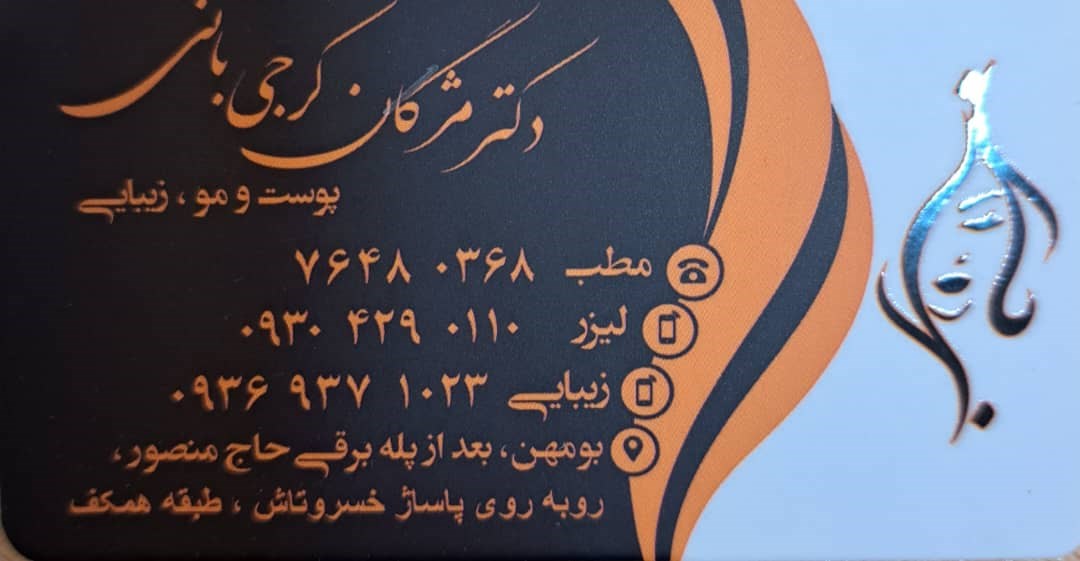 دکتر مژگان کرجی بانی
پوست و مو ، زیبایی
مطب ۷۶۴۸ ۰۳۶۸
لیزر ۰۹۳۰ ۴۲۹ ۰۱۱۰
زیبایی ۰۹۳۶ ۹۳۷ ۱۰۲۳
بومهن، بعد از پله برقی حاج منصور،
روبه روی پاساژ خسروتاش ، طبقه همکف